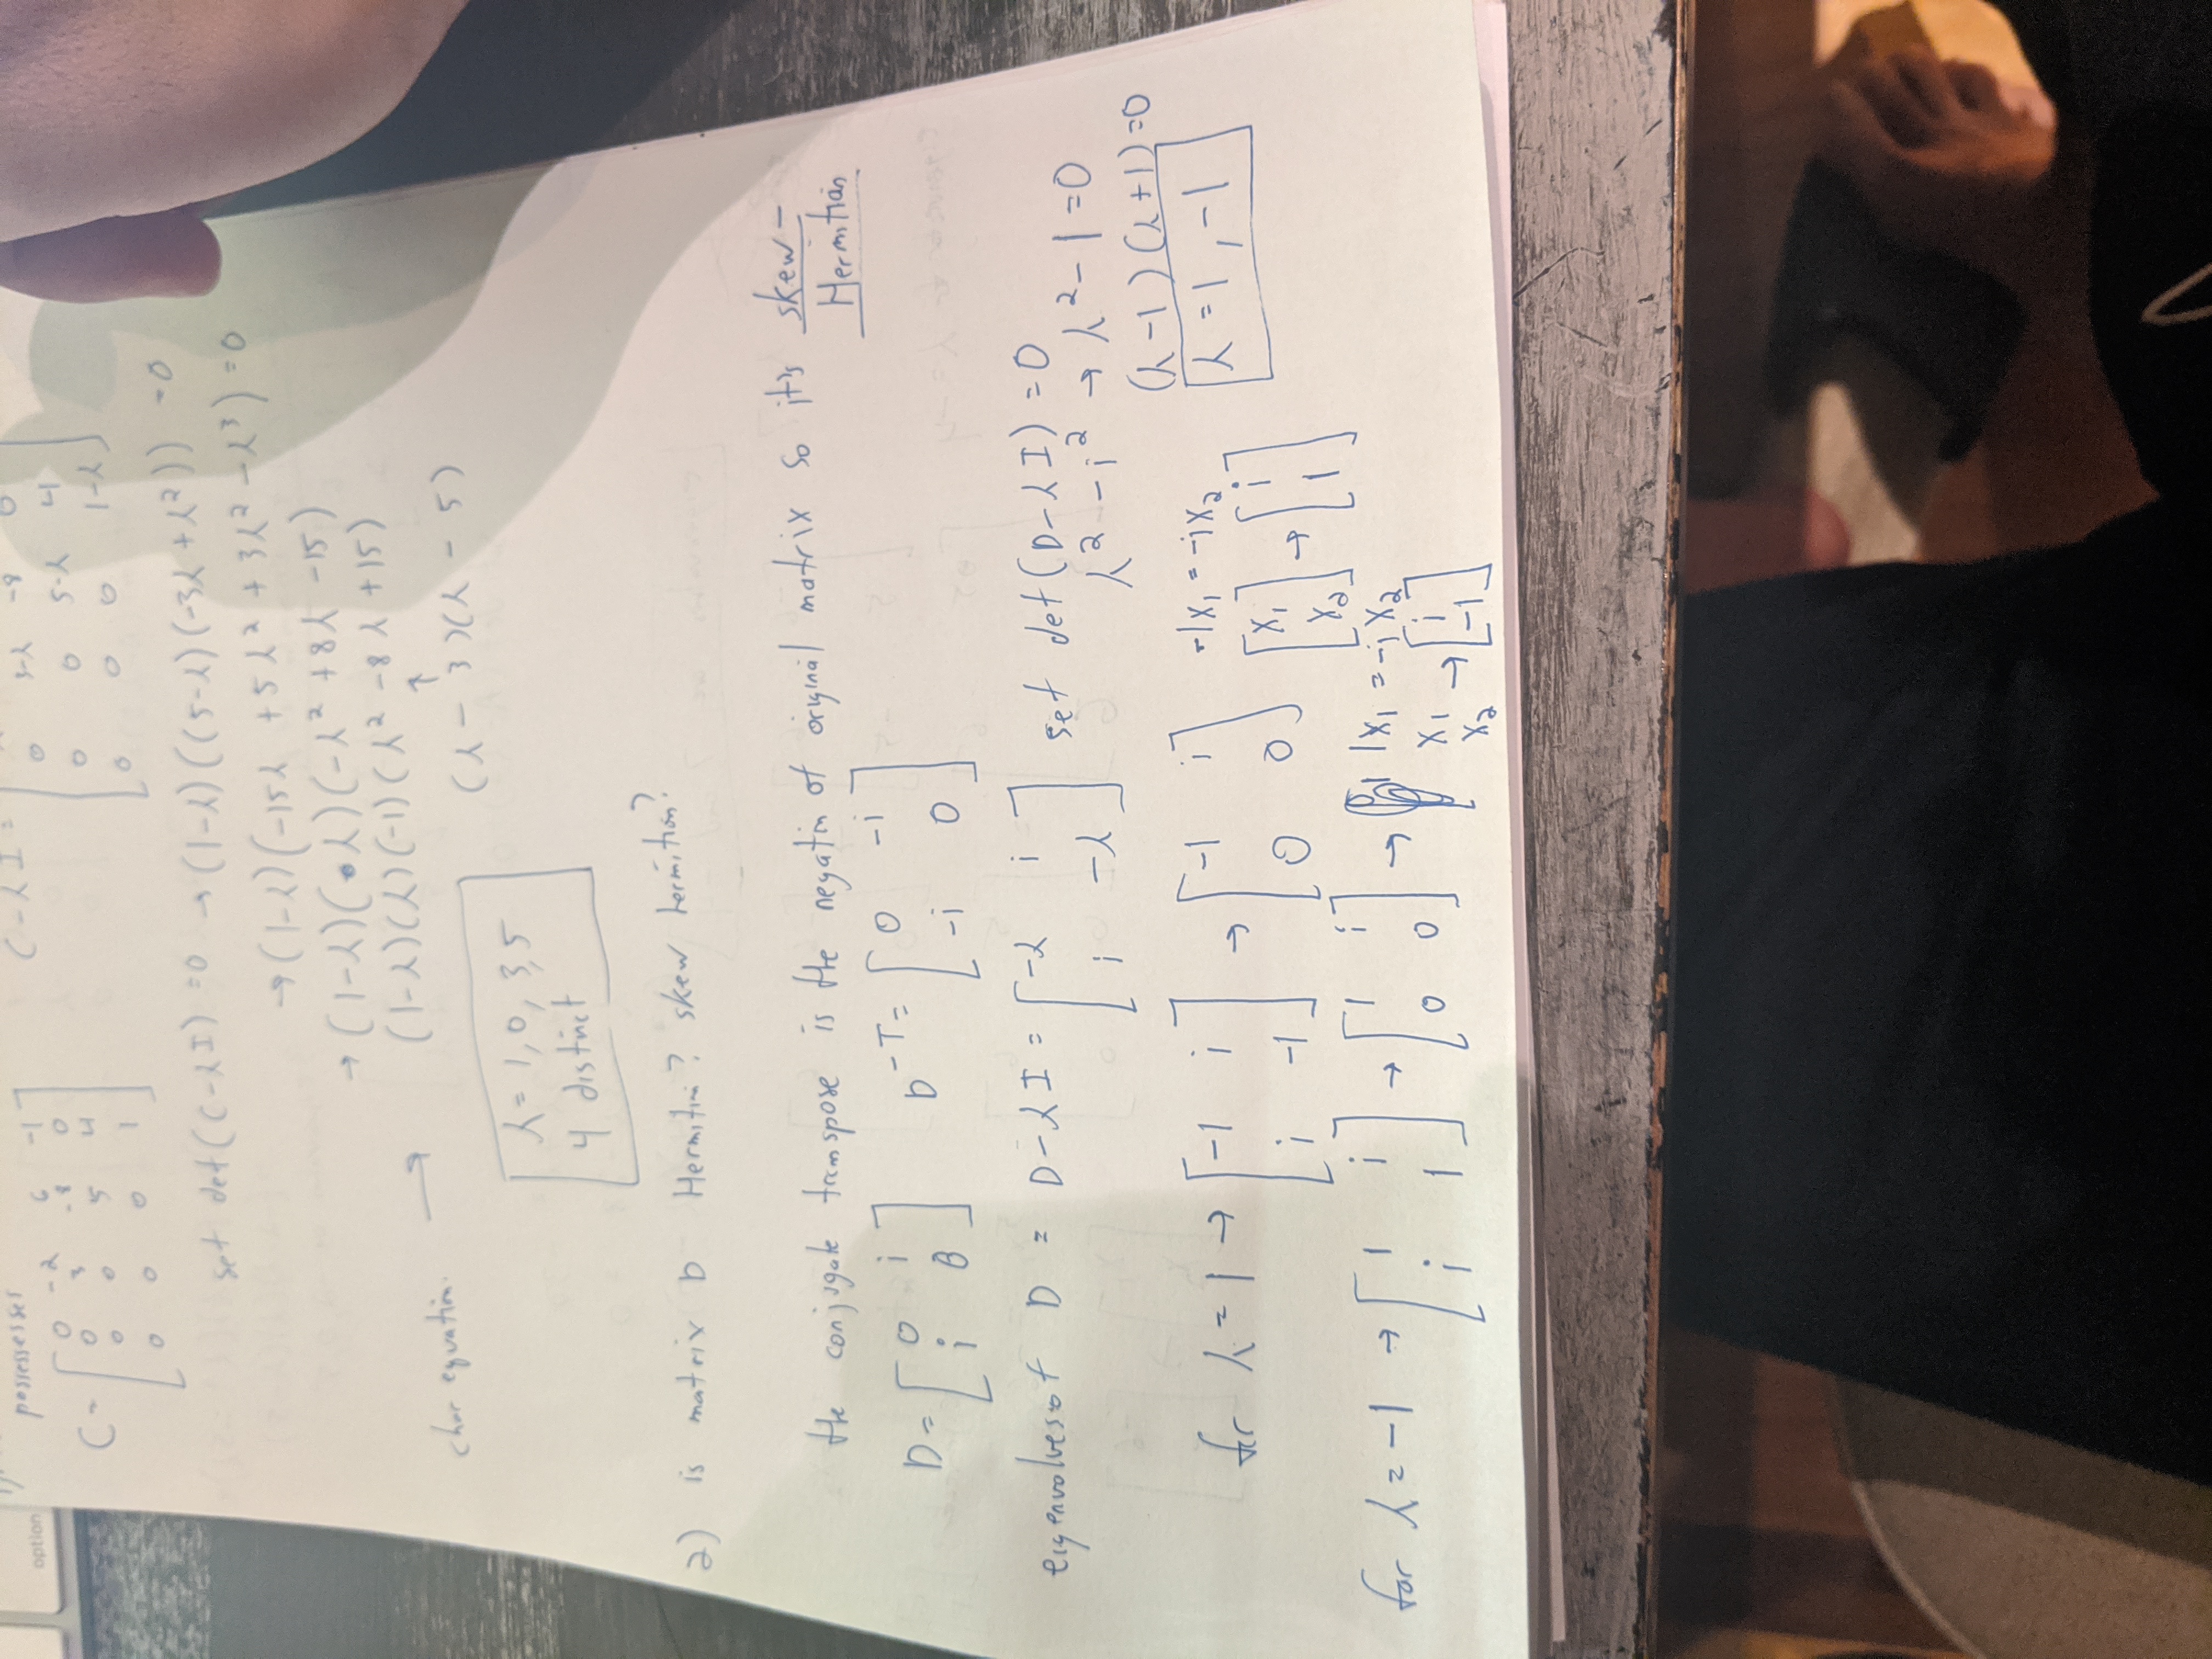 option
possessesses
C = [ 0 -2 6 -1
0 3 -8 0
0 0 5 4
0 0 0 1 ]
C-λI =
0 3-λ -8 0
0 0 5-λ 4
0 0 0 1-λ
set det(C-λI) =0 → (1-λ)((5-λ)(-3λ+λ²)) =0
→ (1-λ)(-15λ +5λ² + 3λ² -λ³) =0
→ (1-λ)(λ)(-λ² +8λ -15)
(1-λ)(λ)(-1)(λ² -8λ +15)
↑
char equation. →
(λ - 3)(λ - 5)
λ= 1, 0, 3, 5
4 distinct
2) is matrix D Hermition? skew hermition?
the conjugate transpose is the negatin of original matrix so it's skew-
Hermitian
D= [ 0 i
i 0 ]
D^-T= [ 0 -i
-i 0 ]
eigenvalves of D = D-λI = [ -λ i
i -λ ]
set det(D-λI) =0
λ² -i² → λ²-1=0
(λ-1)(λ+1)=0
λ =1, -1
for λ = 1 → [ -1 i
i -1 ] → [ -1 i
0 0 ]
-1x₁ = -ix₂
[ x₁
x₂ ] → [ i
1 ]
for λ = -1 → [ 1 i
i 1 ] → [ 1 i
0 0 ] →
1x₁ = -ix₂
x₁
x₂ → [ i
-1 ]